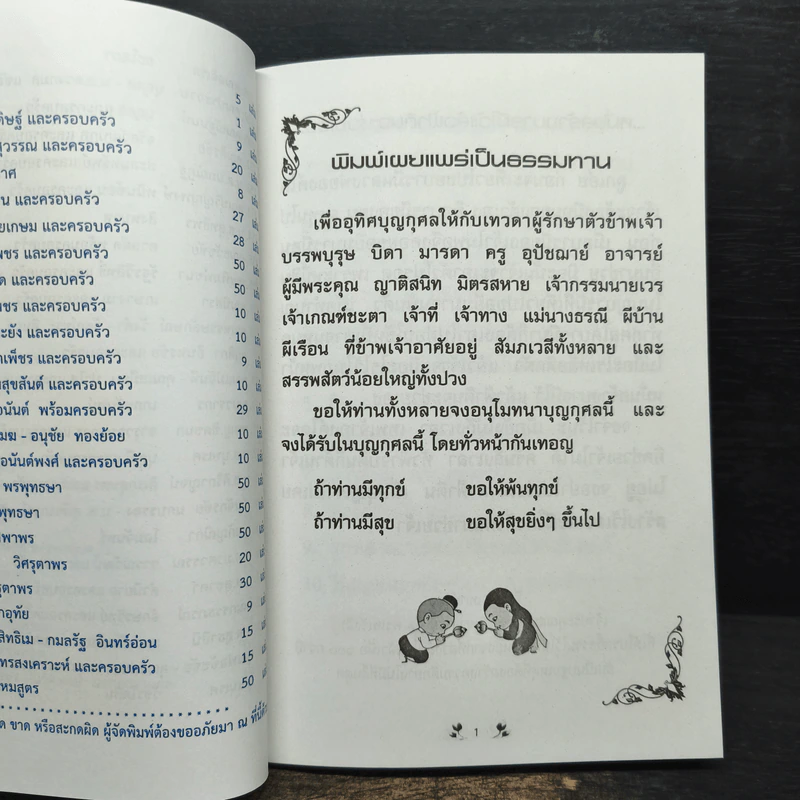 5
ดิษฐ์ และครอบครัว 1
สุวรรณ และครอบครัว 9
กาศ 20
และครอบครัว 8
ยเกษม และครอบครัว 27
พชร และครอบครัว 28
และครอบครัว 50
และครอบครัว 50
ะยัง และครอบครัว 10
าเพ็ชร และครอบครัว 10
สุขสันต์ และครอบครัว 10
อนันต์ พร้อมครอบครัว 29
- อนุชัย ทองย้อย 10
อนันต์พงศ์ และครอบครัว 10
พรพุทธษา 50
พุทธษา 50
ิพาพร 50
วิศรุตาพร 20
รุตาพร 30
กอุทัย 9
สิทธิเม - กมลรัฐ อินทร์อ่อน 15
ทรสงเคราะห์ และครอบครัว 15
หมสูตร 50
ขาด หรือสะกดผิด ผู้จัดพิมพ์ต้องขออภัยมา ณ ที่นี้ด้วย
พิมพ์เผยแพร่เป็นธรรมทาน
เพื่ออุทิศบุญกุศลให้กับเทวดาผู้รักษาตัวข้าพเจ้า
บรรพบุรุษ บิดา มารดา ครู อุปัชฌาย์ อาจารย์
ผู้มีพระคุณ ญาติสนิท มิตรสหาย เจ้ากรรมนายเวร
เจ้าเกณฑ์ชะตา เจ้าที่ เจ้าทาง แม่นางธรณี ผีบ้าน
ผีเรือน ที่ข้าพเจ้าอาศัยอยู่ สัมภเวสีทั้งหลาย และ
สรรพสัตว์น้อยใหญ่ทั้งปวง
ขอให้ท่านทั้งหลายจงอนุโมทนาบุญกุศลนี้ และ
จงได้รับในบุญกุศลนี้ โดยทั่วหน้ากันเทอญ
ถ้าท่านมีทุกข์ ขอให้พ้นทุกข์
ถ้าท่านมีสุข ขอให้สุขยิ่งๆ ขึ้นไป
1